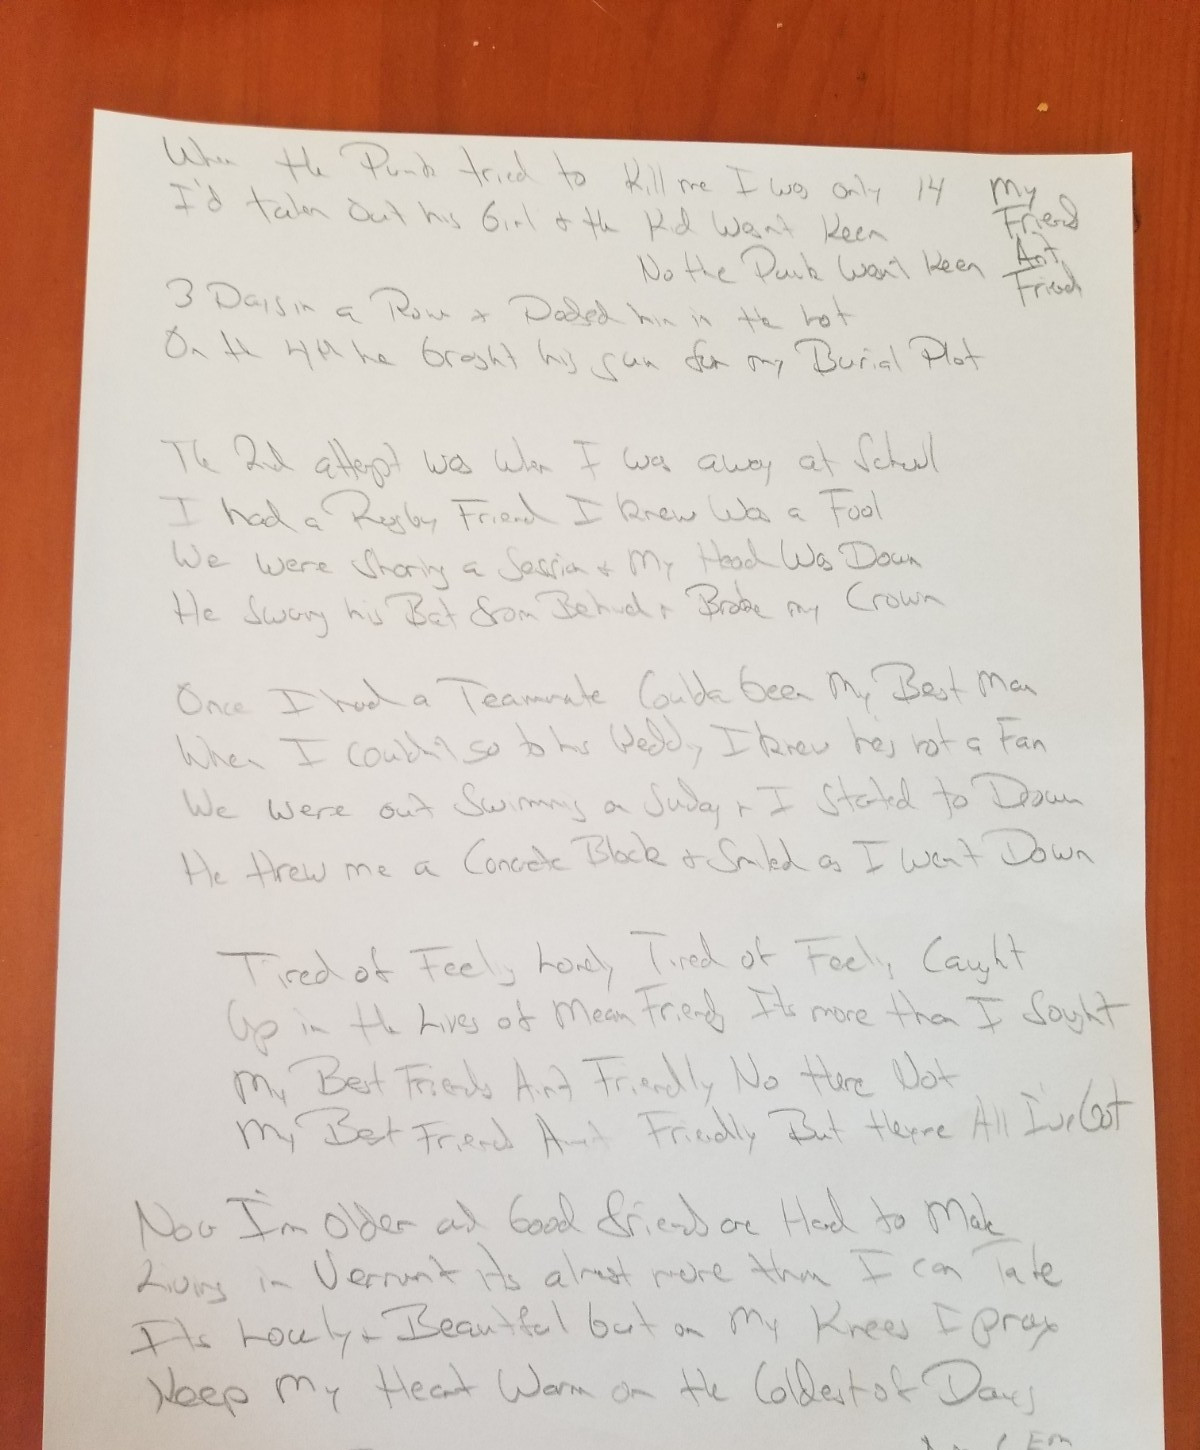 When the Punk tried to Kill me I was only 14
I'd taken out his Girl & the Kid Wasn't Keen
No the Punk Wasn't Keen
My
Friend
Ain't
Friend
3 Days in a Row & Dodged him in the lot
On the 4th he brought his gun for my Burial Plot
The 2nd attempt was when I was away at School
I had a Rugby Friend I knew Was a Fool
We were Sharing a Session & My Head Was Down
He Swung his Bat from Behind & Broke my Crown
Once I had a Teammate Coulda been My Best Man
When I couldn't go to his Wedding I knew he's not a Fan
We were out Swimming on Sunday & I Started to Drown
He threw me a Concrete Block & Smiled as I went Down
Tired of Feeling Lonely Tired of Feeling Caught
Up in the Lives of Mean Friends Its more than I Sought
My Best Friends Aint Friendly No There Not
My Best Friends Aint Friendly But theyre All I've Got
Now I'm Older and Good friends are Hard to Make
Living in Vermont its almost more than I can Take
Its Lonely & Beautiful but on My Knees I pray
Keep My Heart Warm on the Coldest of Days